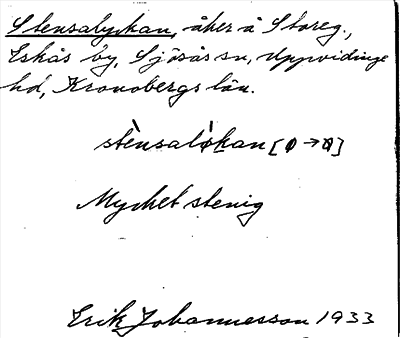 Stensalyckan, åker å Storeg.,
Eskås by, Sjösås sn, Uppvidinge
hd, Kronobergs län.
stènsalø̀kan [ø → ø]
Mycket stenig
Erik Johannesson 1933